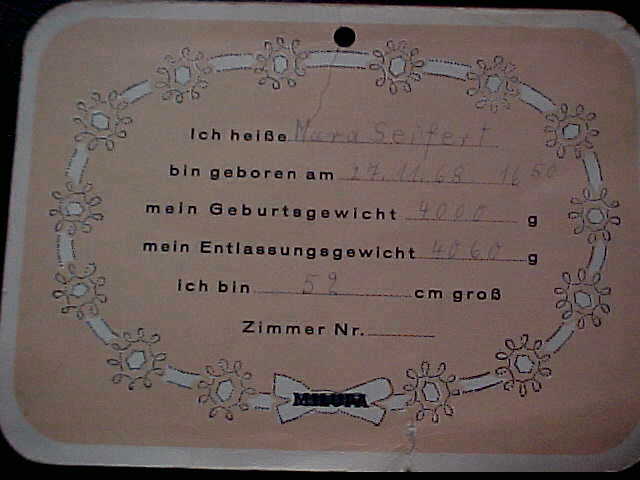 Ich heiße Mara Seifert
bin geboren am 27.11.68 16 50
mein Geburtsgewicht 4000 g
mein Entlassungsgewicht 4060 g
ich bin 52 cm groß
Zimmer Nr.
MILUPA